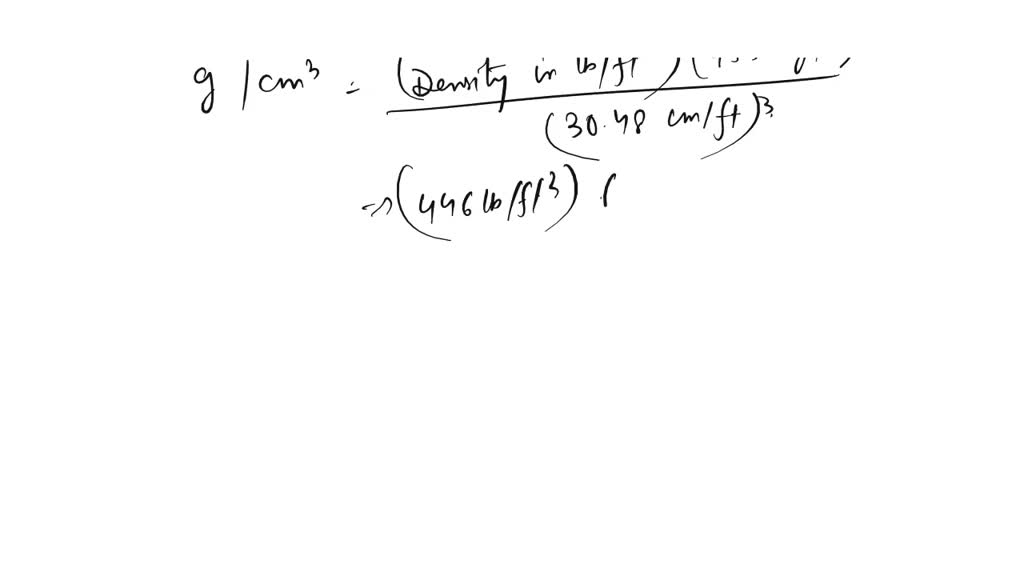 g/cm³ = (Density in lb/ft
(30.48 cm/ft)³
⇒ (446 lb/ft³) (